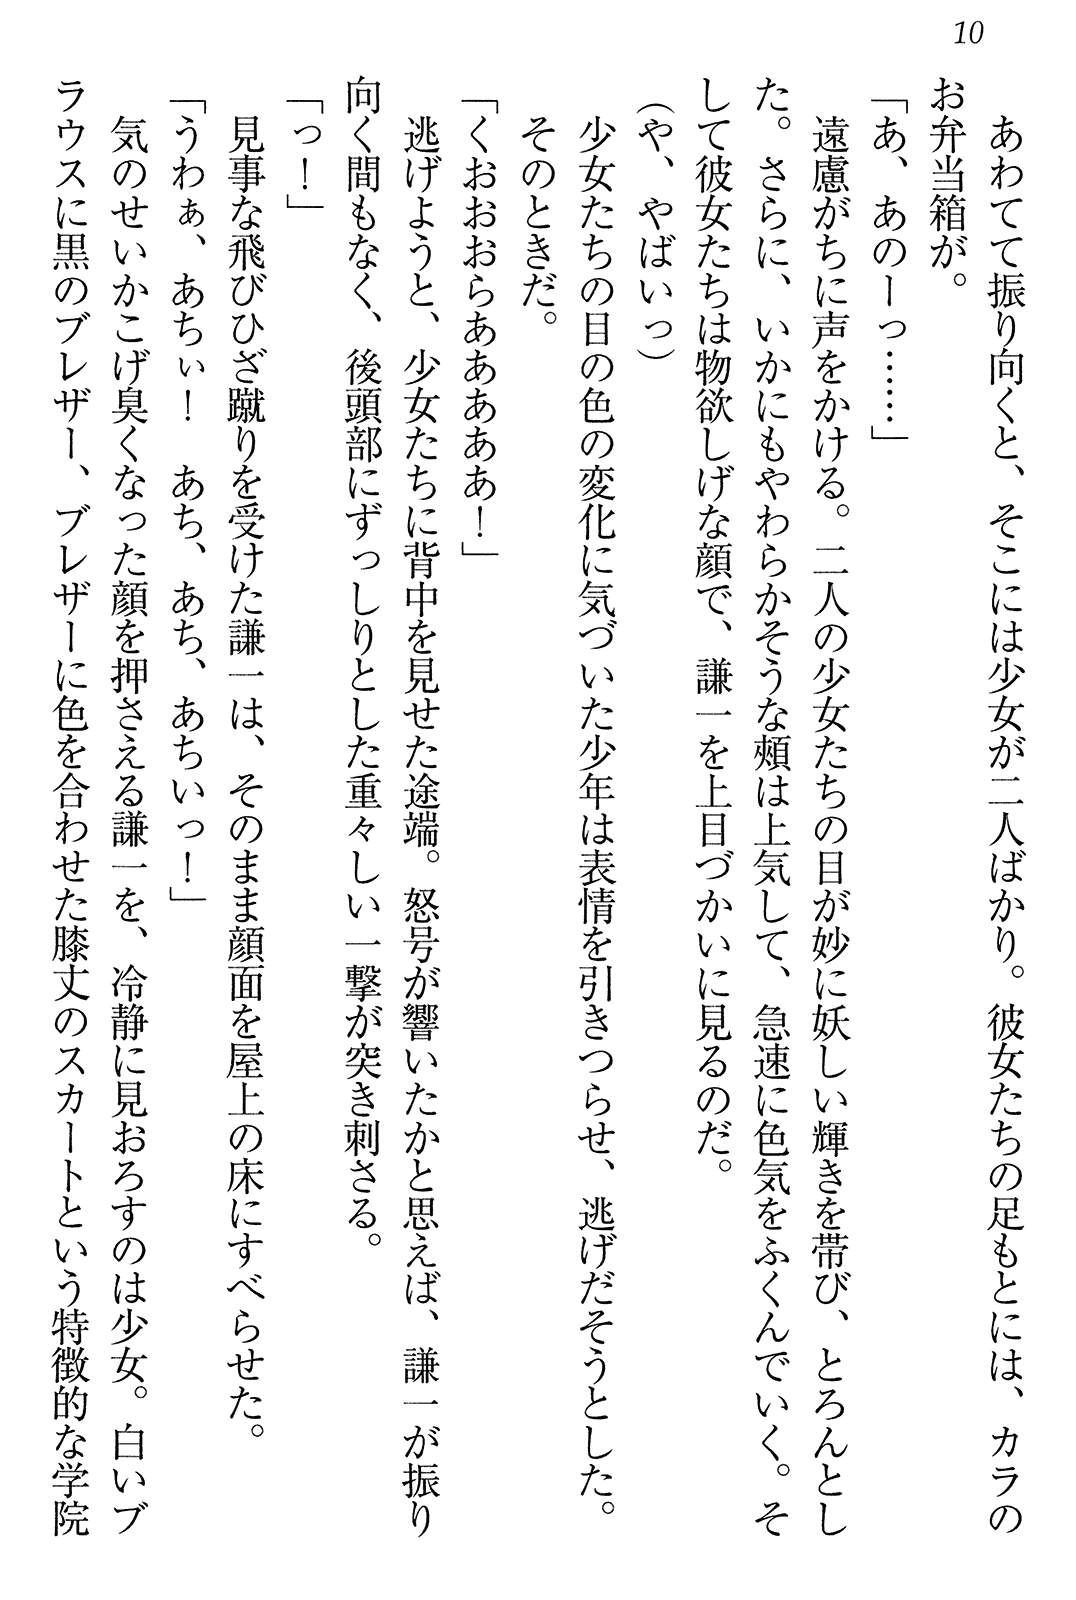 10
あわてて振り向くと、そこには少女が二人ばかり。彼女たちの足もとには、カラの
お弁当箱が。
「あ、あのーっ……」
遠慮がちに声をかける。二人の少女たちの目が妙に妖しい輝きを帯び、とろんとし
た。さらに、いかにもやわらかそうな頰は上気して、急速に色気をふくんでいく。そ
して彼女たちは物欲しげな顔で、謙一を上目づかいに見るのだ。
（や、やばいっ）
少女たちの目の色の変化に気づいた少年は表情を引きつらせ、逃げだそうとした。
そのときだ。
「くおおおらああああ！」
逃げようと、少女たちに背中を見せた途端。怒号が響いたかと思えば、謙一が振り
向く間もなく、後頭部にずっしりとした重々しい一撃が突き刺さる。
「っ！」
見事な飛びひざ蹴りを受けた謙一は、そのまま顔面を屋上の床にすべらせた。
「うわぁ、あちぃ！　あち、あち、あちいっ！」
気のせいかこげ臭くなった顔を押さえる謙一を、冷静に見おろすのは少女。白いブ
ラウスに黒のブレザー、ブレザーに色を合わせた膝丈のスカートという特徴的な学院